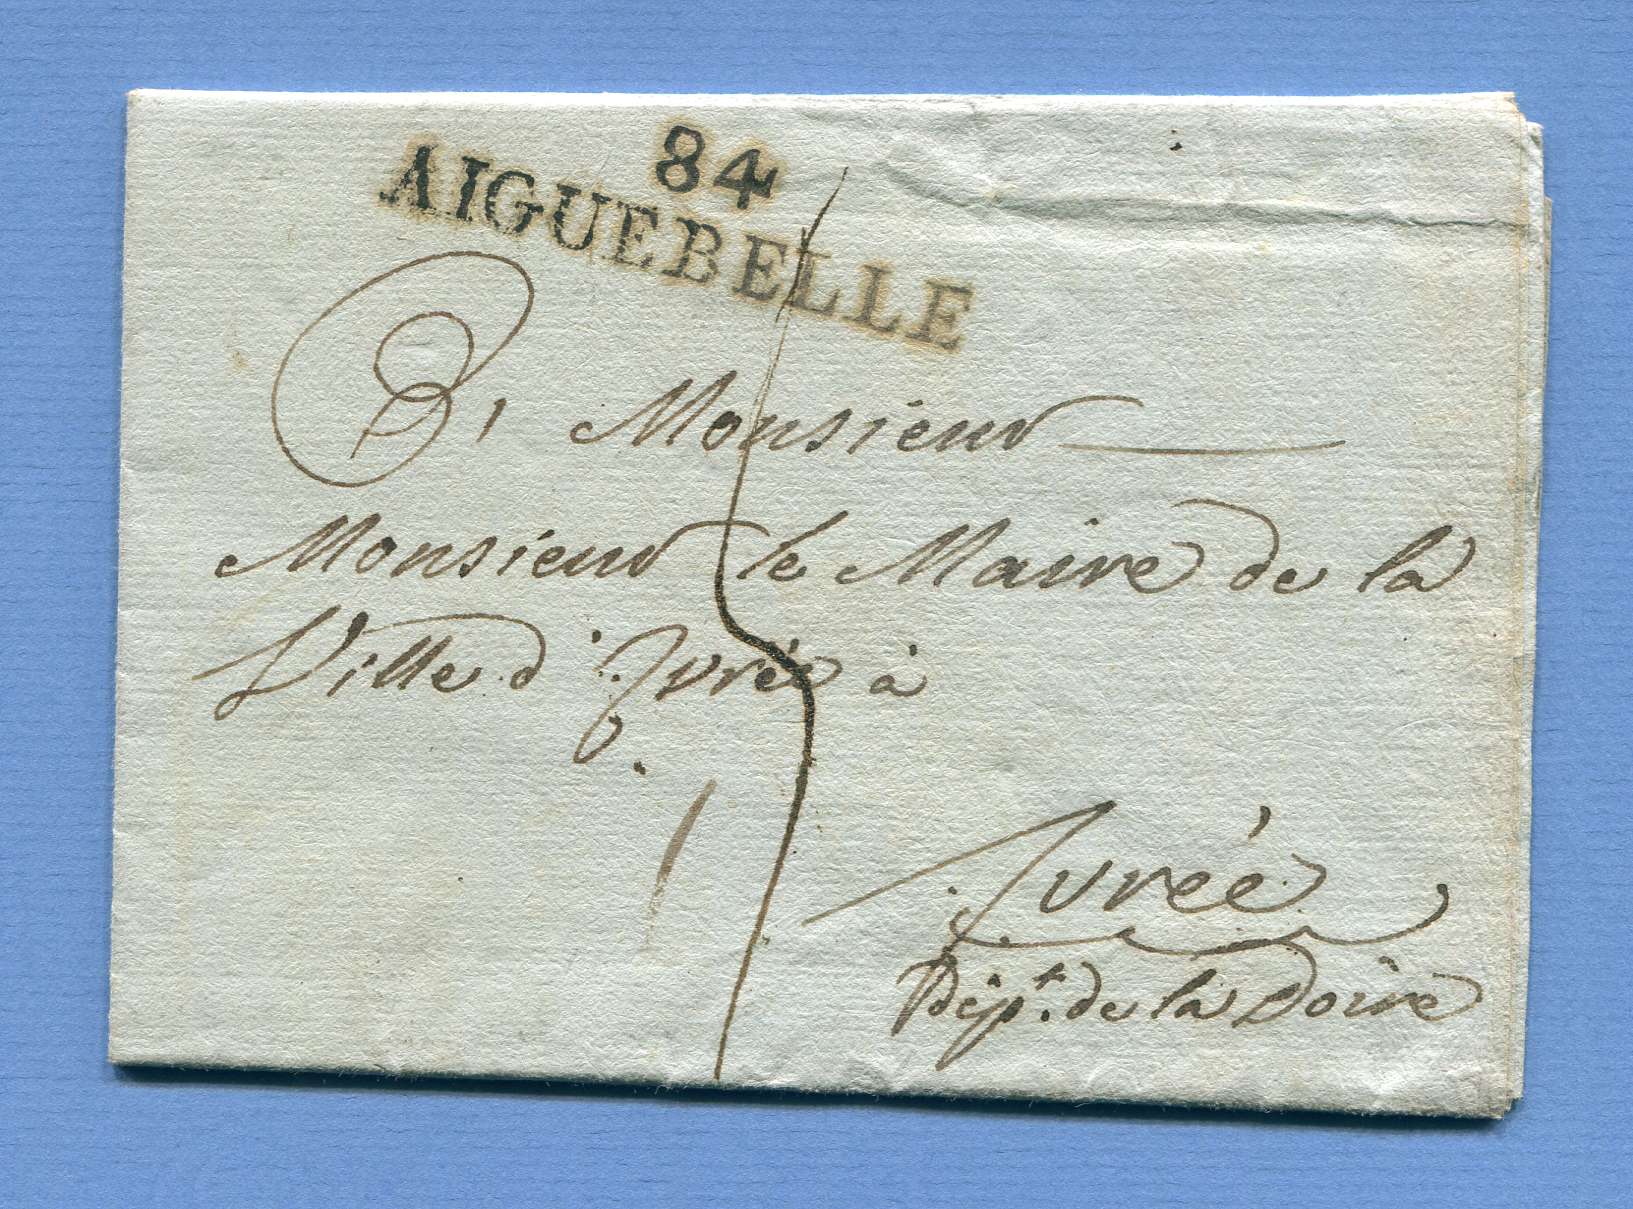 84
AIGUEBELLE
A Monsieur
Monsieur le Maire de la
Ville d'Ivrée à
Ivrée
Dépt. de la Doire